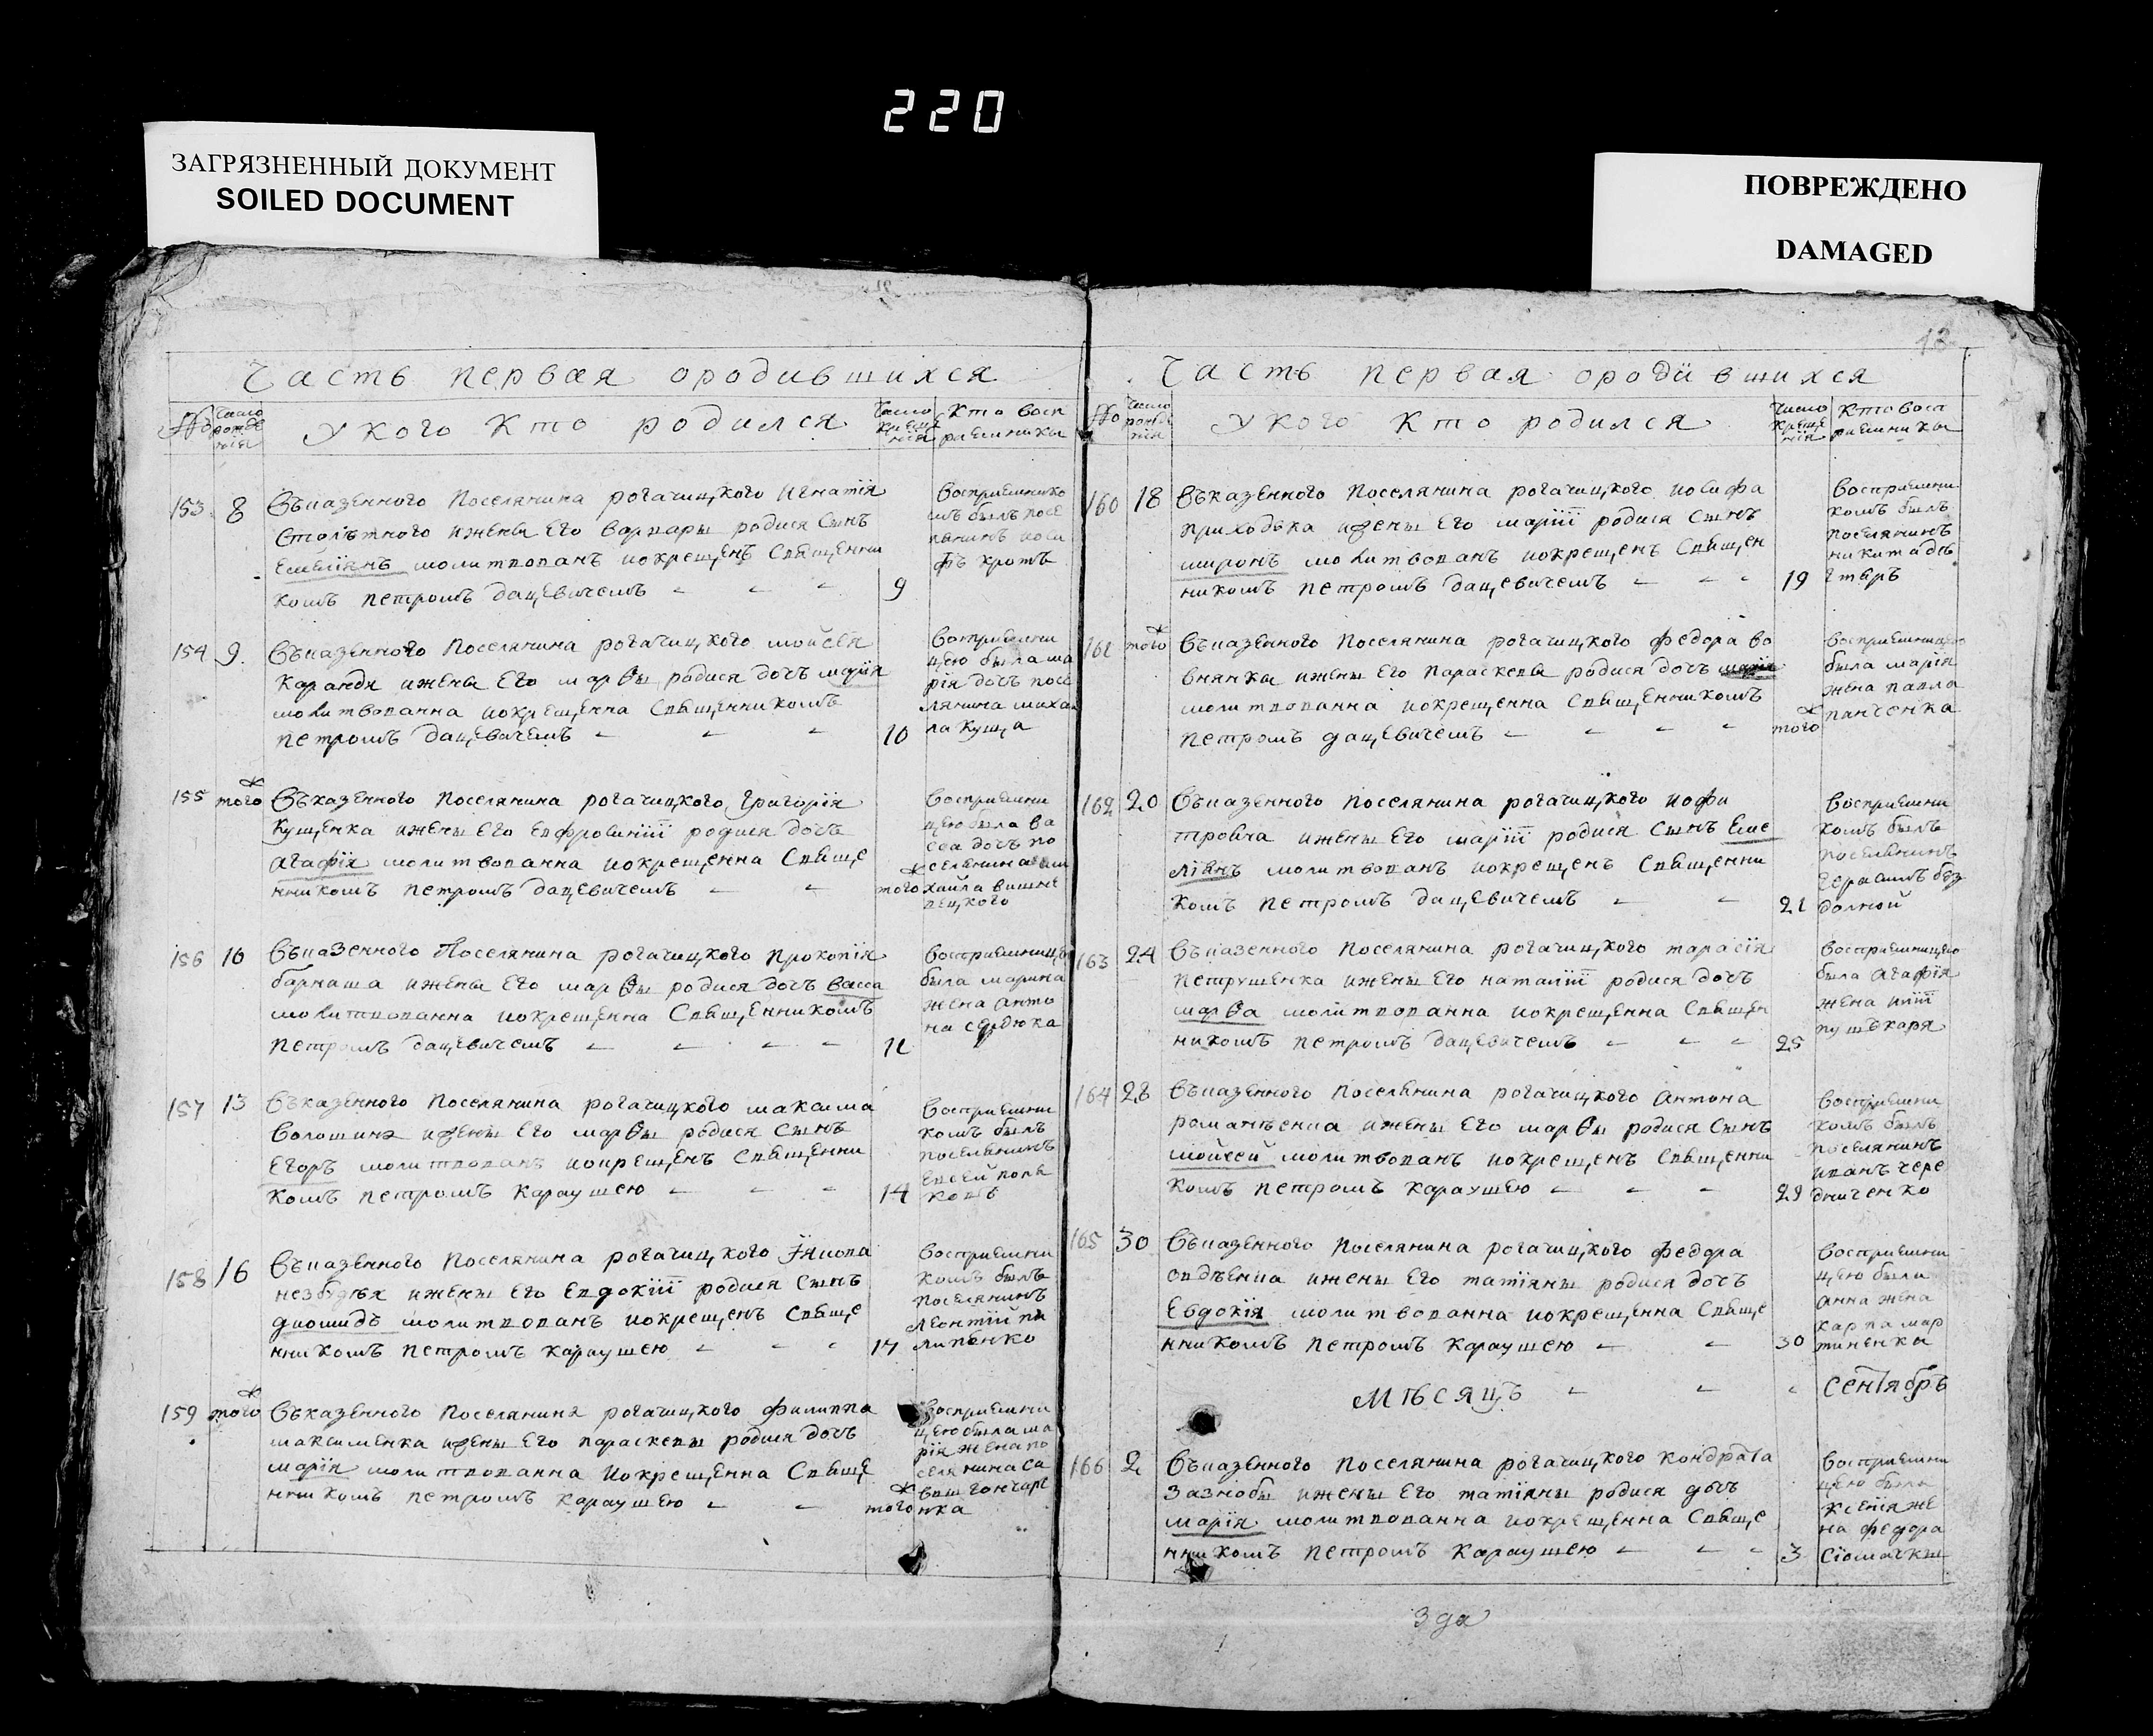 220
ЗАГРЯЗНЕННЫЙ ДОКУМЕНТ
SOILED DOCUMENT
ПОВРЕЖДЕНО
DAMAGED
Часть первая ородившихся
№ Число рожде нія
У кого кто родился
Число креще нія
Кто восп ріемники
153 8 Въказенного поселянина рогачицкого Игнатія
Столѣтного ижены Его варвары родися Сынъ
Емеліянъ молитвованъ иокрещенъ Священни
комъ петромъ дацевичемъ 9
воспріемнико
мъ былъ посе
лянинъ иоси
фъ кротъ
154 9 Въказенного поселянина рогачицкого мойсея
ижены Его марѳы родися дочъ марія
молитвованна иокрещенна Священникомъ
петромъ дацевичемъ 10
воспріемни
цею была ма
рія дочъ посе
лянина михаи
ла куща
155 того ж Въказенного поселянина рогачицкого Григорія
кущенка ижены Его Евфросиніи родися дочъ
агафія молитвованна иокрещенна Свяще
нникомъ петромъ дацевичемъ того ж
воспріемни
цею была ва
сса дочъ по
селянина ми
хайла вишне
вецкого
156 10 Въказенного поселянина рогачицкого прокопія
барнаша ижены Его марѳы родися дочъ васса
молитвованна иокрещенна Священникомъ
петромъ дацевичемъ 11
воспріемницею
была марина
жена анто
на сердюка
157 13 Въказенного поселянина рогачицкого максима
волошина ижены Его марѳы родися Сынъ
Егоръ молитвованъ иокрещенъ Священни
комъ петромъ караушею 14
воспріемни
комъ былъ
поселянинъ
Евсей
158 16 Въказенного поселянина рогачицкого Іякова
ижены Его Евдокіи родися Сынъ
диомидъ молитвованъ иокрещенъ Свяще
нникомъ петромъ караушею 17
воспріемни
комъ былъ
поселянинъ
леонтій пи
липенко
159 того ж Въказенного поселянина рогачицкого филиппа
максименка ижены Его параскевы родися дочъ
марія молитвованна иокрещенна Свяще
нникомъ петромъ караушею того ж
воспріемни
цею была ма
рія жена по
селянина са
вы гончаре
нка
13
Часть первая ородившихся
№ Число рожде нія
У кого кто родился
Число креще нія
Кто восп ріемники
160 18 Въказенного поселянина рогачицкого иосифа
приходька ижены Его маріи родися Сынъ
миронъ молитвованъ иокрещенъ Священ
никомъ петромъ дацевичемъ 19
воспріемни
комъ былъ
поселянинъ
никита дег
тяръ
161 того ж Въказенного поселянина рогачицкого федора во
внянки ижены Его параскевы родися дочъ марія
молитвованна иокрещенна Священникомъ
петромъ дацевичемъ того ж
воспріемницею
была марія
жена павла
панченка
162 20 Въказенного поселянина рогачицкого
ижены Его маріи родися Сынъ Еме
ліянъ молитвованъ иокрещенъ Священни
комъ петромъ дацевичемъ 21
воспріемни
комъ былъ
поселянинъ
герасимъ без
долной
163 24 Въказенного поселянина рогачицкого тарасія
петрушенка ижены Его наталіи родися дочъ
марѳа молитвованна иокрещенна Священ
никомъ петромъ дацевичемъ 25
воспріемницею
была агафія
жена иліи
пушъкаря
164 28 Въказенного поселянина рогачицкого антона
романѣенка ижены Его марѳы родися Сынъ
мойсей молитвованъ иокрещенъ Священни
комъ петромъ караушею 29
воспріемни
комъ былъ
поселянинъ
иванъ чере
дниченко
165 30 Въказенного поселянина рогачицкого федора
овдѣенка ижены Его татіяны родися дочъ
Евдокія молитвованна иокрещенна Свяще
нникомъ петромъ караушею 30
воспріемни
цею была
анна жена
карпа мар
тиненка
Мѣсяцъ Сентябръ
166 2 Въказенного поселянина рогачицкого кондрата
зазнобы ижены Его татіяны родися дочъ
марія молитвованна иокрещенна Свяще
нникомъ петромъ караушею 3
воспріемни
цею была
ксенія же
на федора